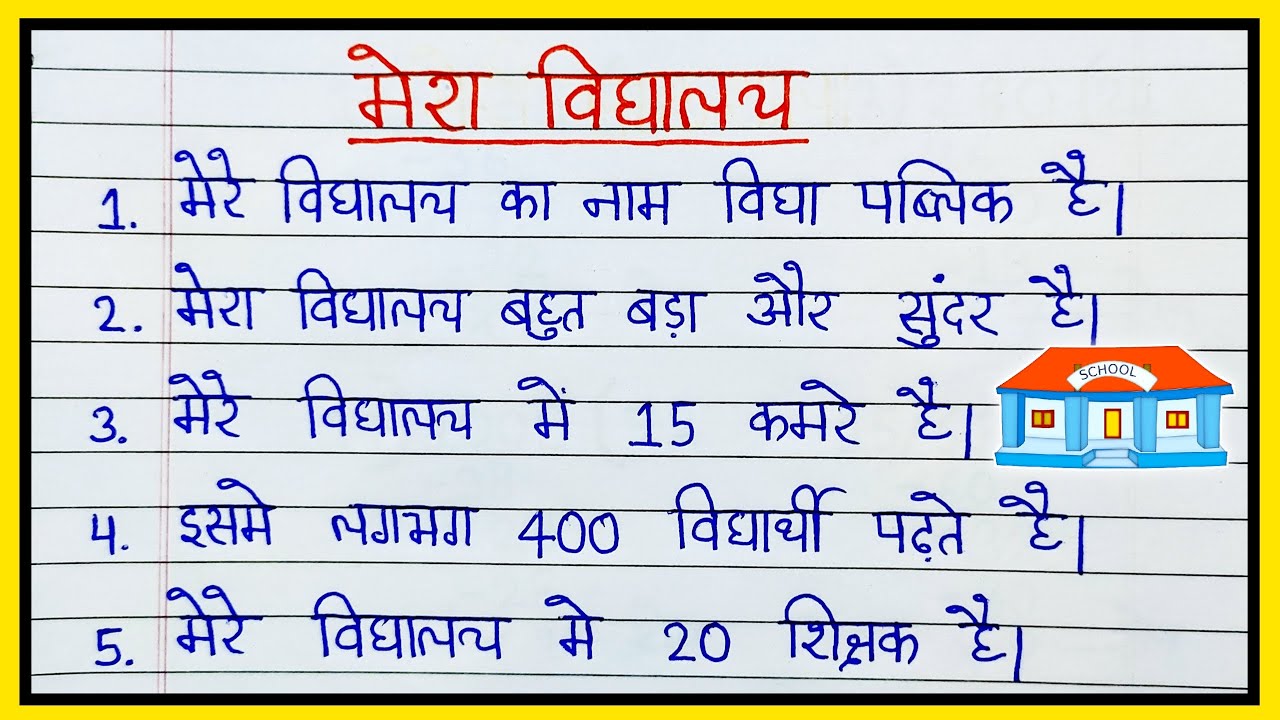 मेरा विद्यालय
1. मेरे विद्यालय का नाम विद्या पब्लिक है।
2. मेरा विद्यालय बहुत बड़ा और सुंदर है।
SCHOOL
3. मेरे विद्यालय में 15 कमरे है।
4. इसमे लगभग 400 विद्यार्थी पढ़ते है।
5. मेरे विद्यालय मे 20 शिक्षक है।